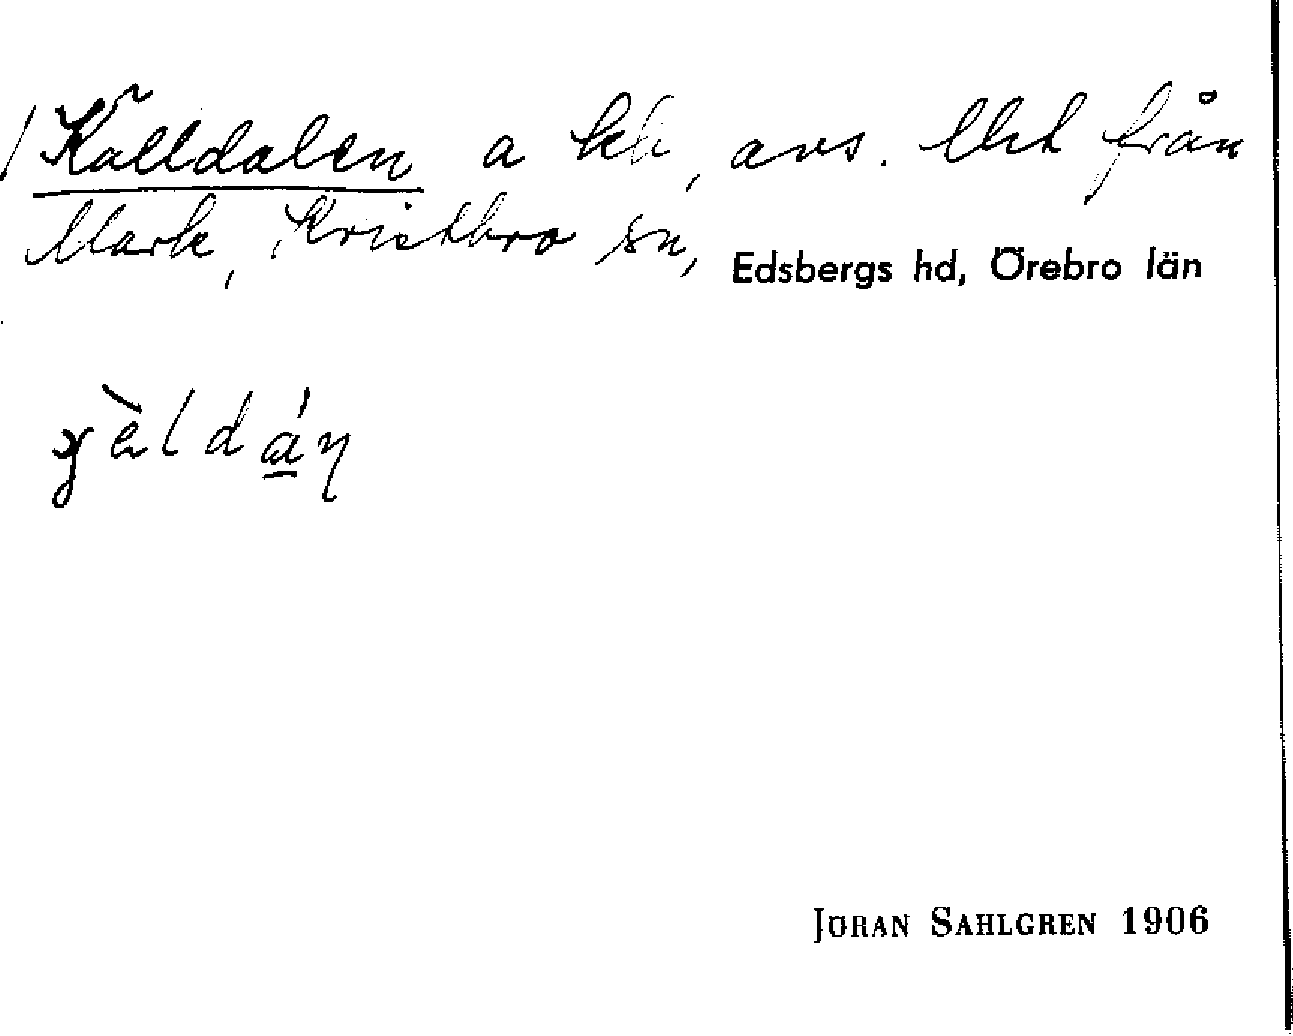 / Källdalen a kk, avs. Utd från
Mark, Kvistbro sn, Edsbergs hd, Örebro län
Jöran Sahlgren 1906